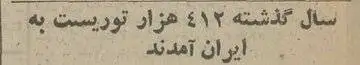 سال گذشته ٤١٢ هزار توریست به
ایران آمدند